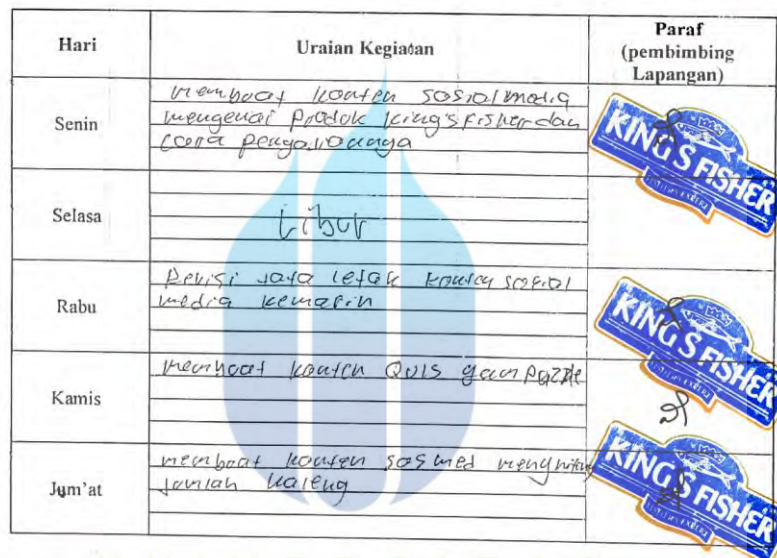 Hari
Uraian Kegiatan
Paraf
(pembimbing
Lapangan)
Senin
membuat konten sosial media
mengenai produk king's fisher dan
cara
KING'S FISHER
Selasa
Libur
Rabu
Revisi tata letak konten sosial
media kemarin
KING'S FISHER
Kamis
membuat konten Quis game Puzzle
Jum'at
membuat konten sosmed menghitung
jumlah kaleng
KING'S FISHER